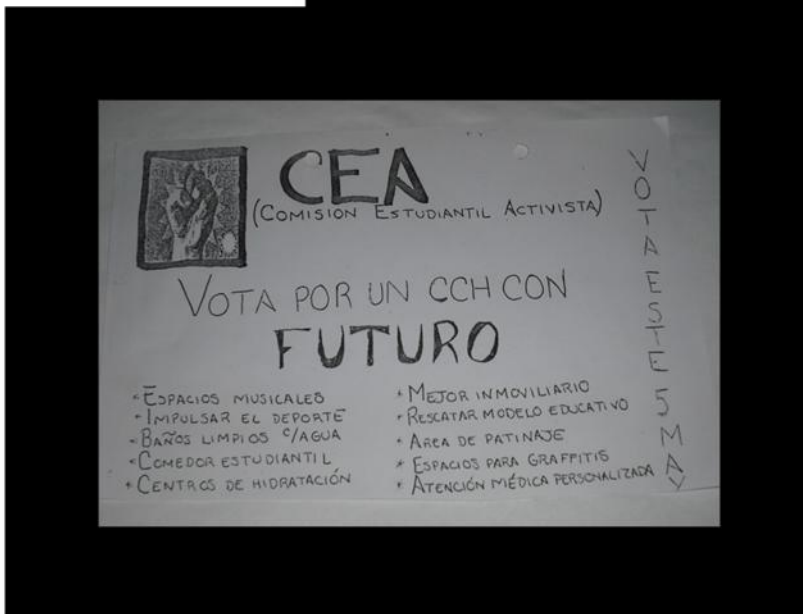 CEA
(COMISION ESTUDIANTIL ACTIVISTA)
VOTA POR UN CCH CON
FUTURO
* ESPACIOS MUSICALES
* IMPULSAR EL DEPORTE
* BAÑOS LIMPIOS C/AGUA
* COMEDOR ESTUDIANTIL
* CENTROS DE HIDRATACIÓN
* MEJOR INMOVILIARIO
* RESCATAR MODELO EDUCATIVO
* AREA DE PATINAJE
* ESPACIOS PARA GRAFFITIS
* ATENCIÓN MÉDICA PERSONALIZADA
VOTA ESTE 5 MAY